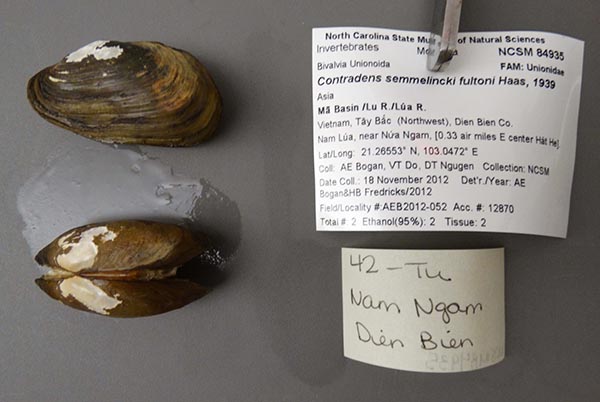 North Carolina State Mu of Natural Sciences
Invertebrates NCSM 84935
Bivalvia Unionoida FAM: Unionidae
Contradens semmelincki fultoni Haas, 1939
Asia
Mã Basin /Lu R./Lúa R.
Vietnam, Tây Bắc (Northwest), Dien Bien Co.
Nam Lúa, near Nứa Ngam, [0.33 air miles E center Hát He].
Lat/Long: 21.26553° N, 103.0472° E
Coll: AE Bogan, VT Do, DT Ngugen Collection: NCSM
Date Coll.: 18 November 2012 Det'r./Year: AE
Bogan&HB Fredricks/2012
Field/Locality #:AEB2012-052 Acc. #: 12870
Total #: 2 Ethanol(95%): 2 Tissue: 2
42 - Tu
Nam Ngam
Dien Bien